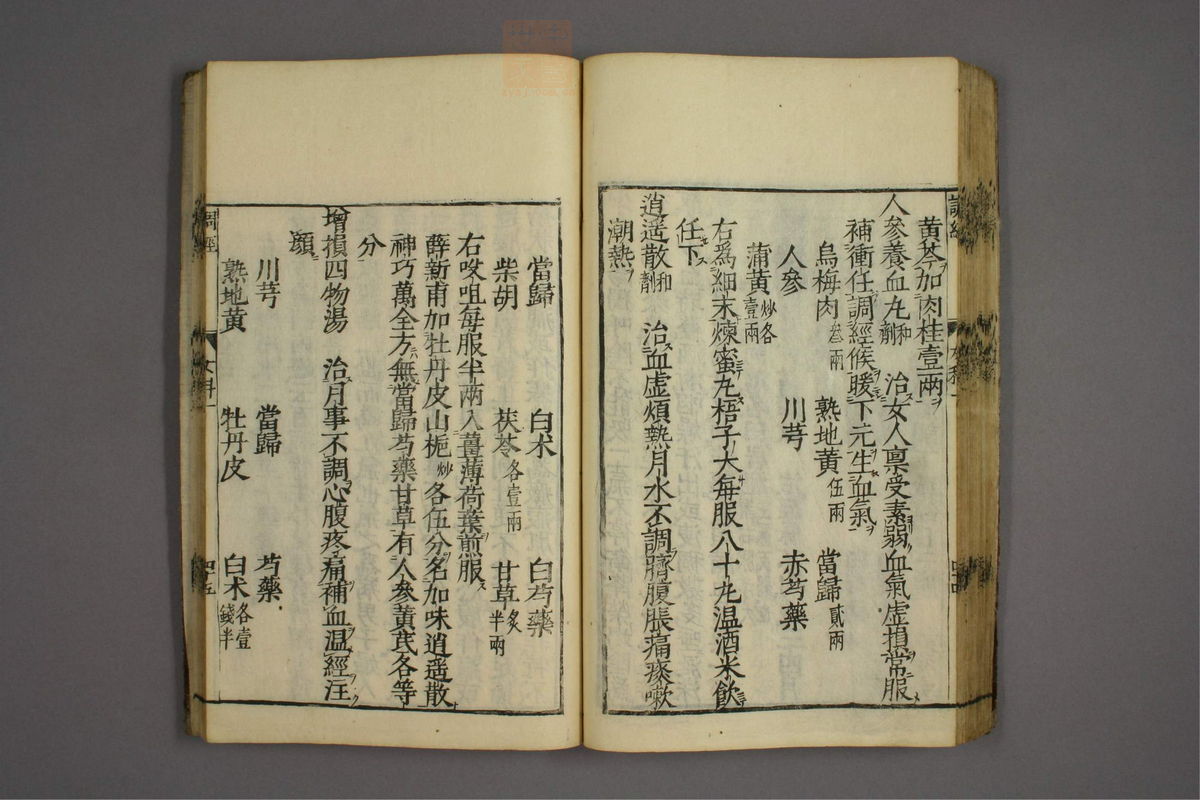 黄芩加肉桂壹兩
人參養血丸和劑 治女人禀受素弱血氣虛損常服
補衝任調經候暖下元生血氣
烏梅肉叁兩 熟地黄伍兩 當歸貳兩
人參 川芎 赤芍藥
蒲黄炒各壹兩
右爲細末煉蜜丸梧子大每服八十丸温酒米飲
任下
逍遥散和劑 治血虛煩熱月水不調臍腹脹痛痰嗽
潮熱
當歸 白术 白芍藥
柴胡 茯苓各壹兩 甘草炙半兩
右㕮咀每服半兩入薑薄荷葉煎服
薛新甫加牡丹皮山梔炒各伍分名加味逍遥散
神巧萬全方無當歸芍藥甘草有人參黄芪各等
分
增損四物湯 治月事不調心腹疼痛補血温經汪
顔
川芎 當歸 芍藥
熟地黄 牡丹皮 白术各壹錢半
調經 女科一 四十五